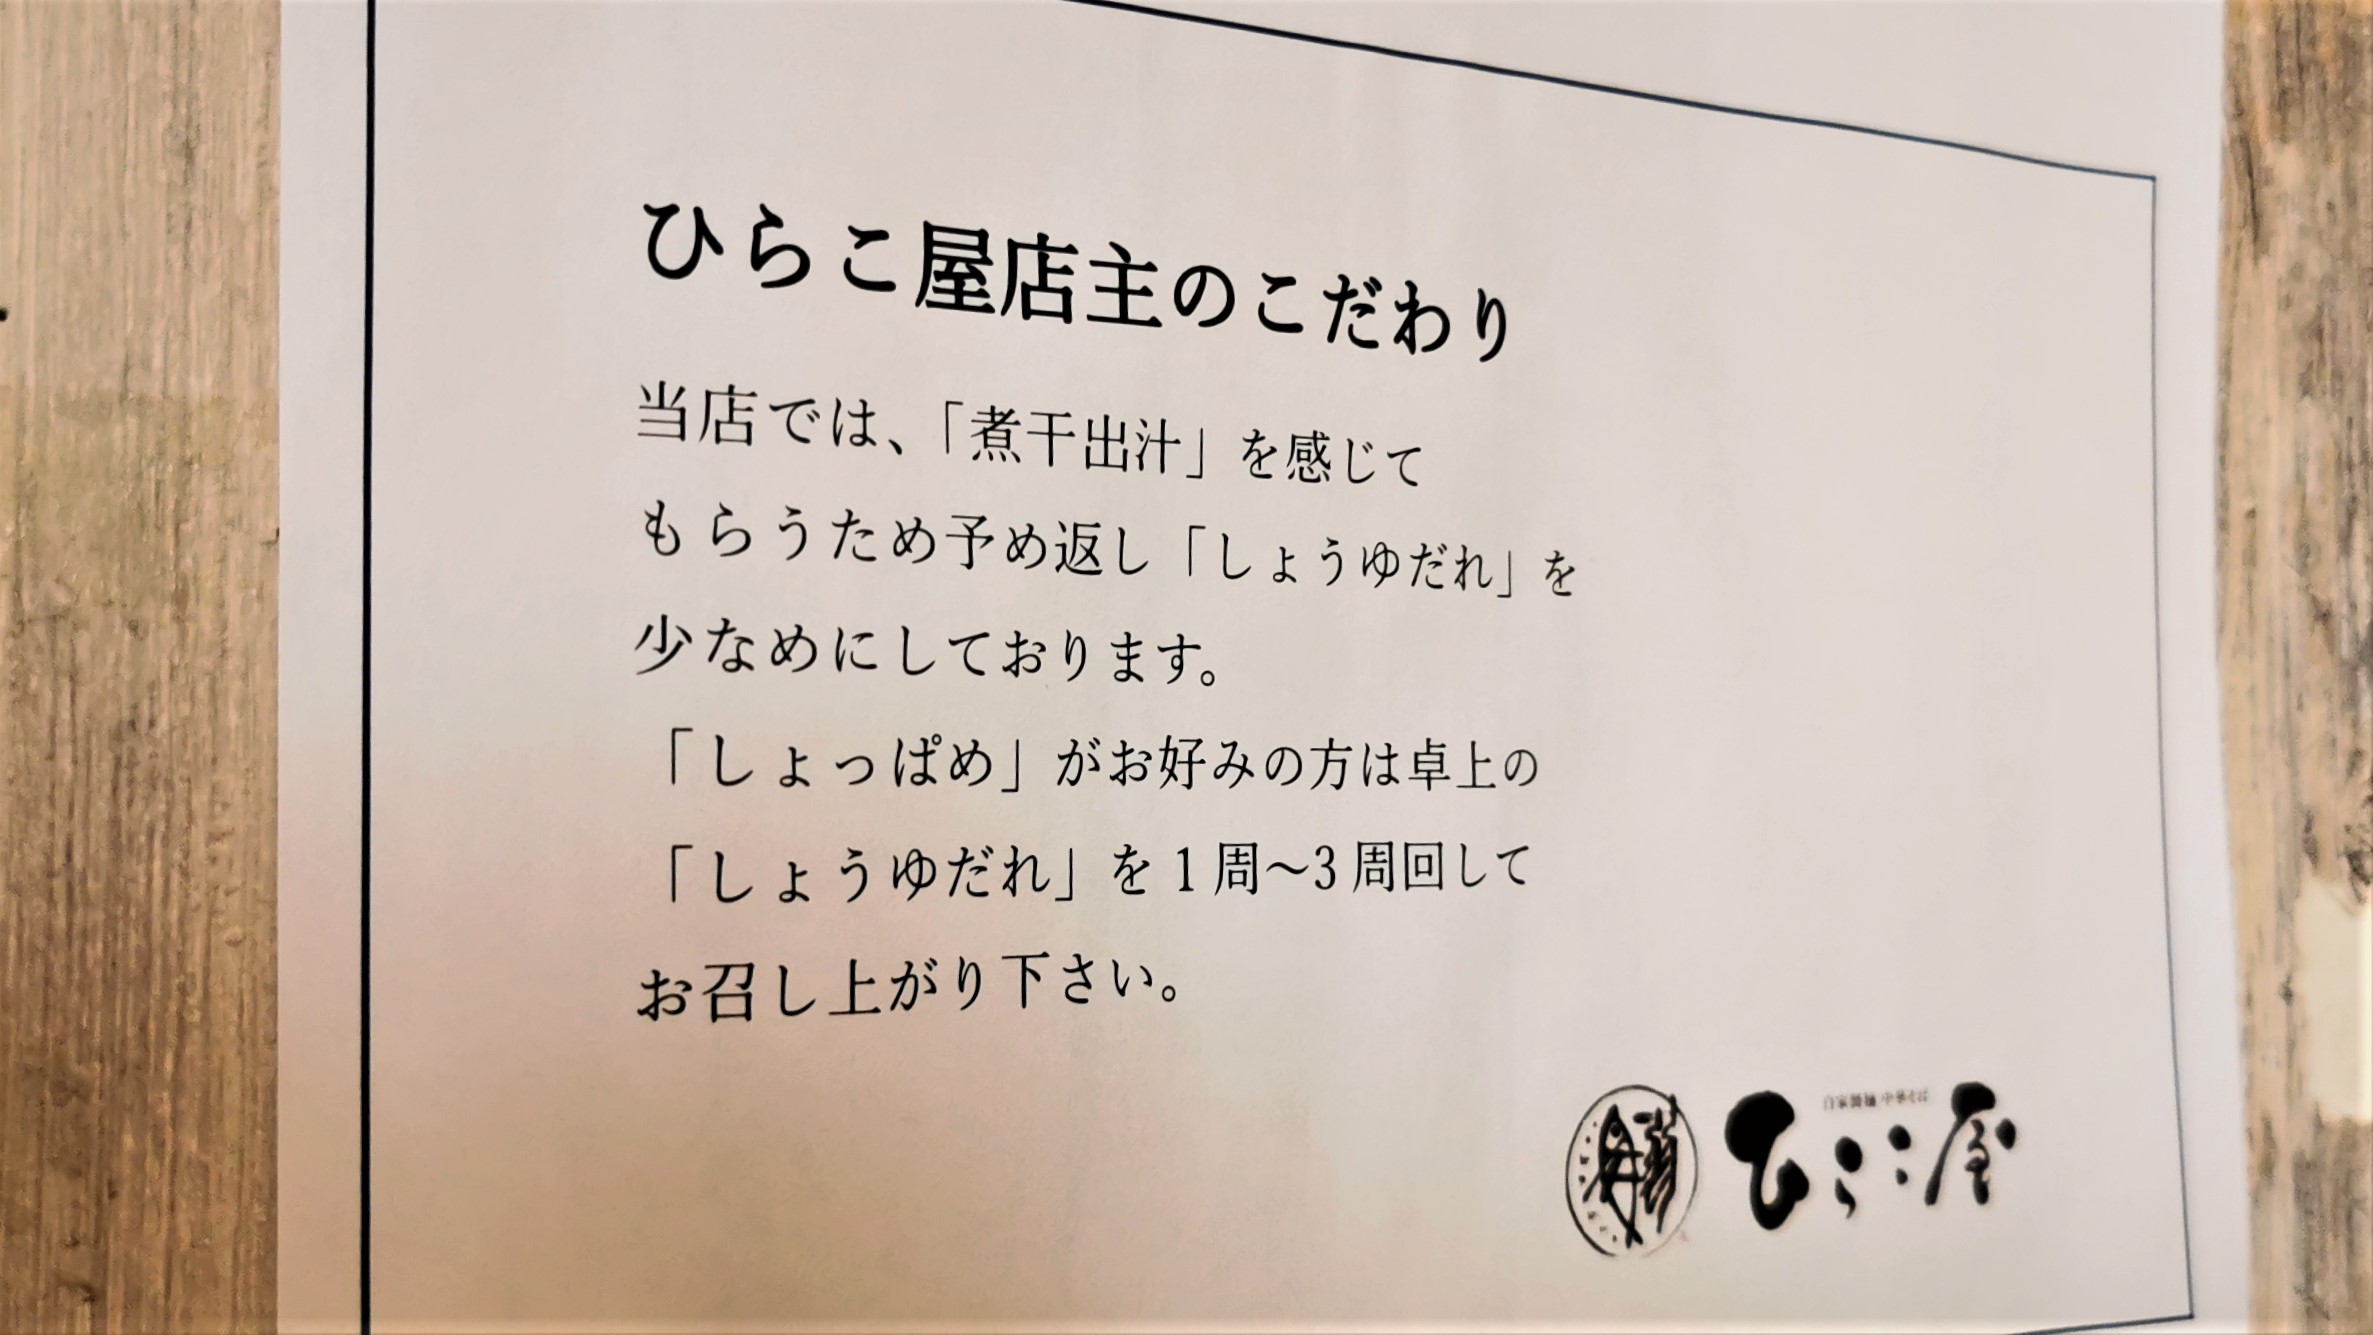 ひらこ屋店主のこだわり
当店では、「煮干出汁」を感じて
もらうため予め返し「しょうゆだれ」を
少なめにしております。
「しょっぱめ」がお好みの方は卓上の
「しょうゆだれ」を1周〜3周回して
お召し上がり下さい。
ひらこ屋